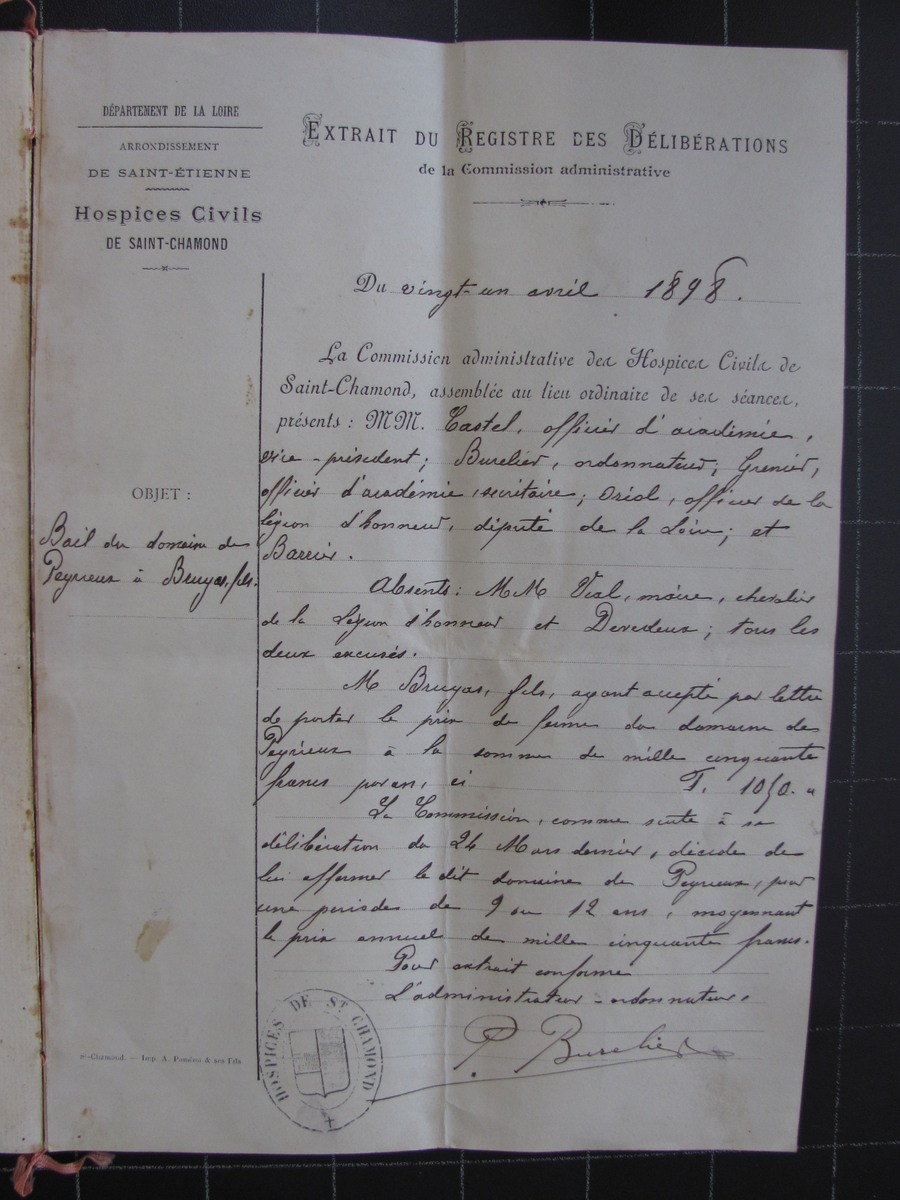 DÉPARTEMENT DE LA LOIRE
ARRONDISSEMENT
DE SAINT-ÉTIENNE
Hospices Civils
DE SAINT-CHAMOND
OBJET :
Bail du domaine de
Peyrieux à Bruyas, fils.
EXTRAIT DU REGISTRE DES DÉLIBÉRATIONS
de la Commission administrative
Du vingt-un avril 1898.
La Commission administrative des Hospices Civils de
Saint-Chamond, assemblée au lieu ordinaire de ses séances,
présents : MM. Castel, officier d'académie,
vice-président; Burelier, ordonnateur; Grenier,
officier d'académie, secrétaire; Oriol, officier de la
légion d'honneur, député de la Loire; et
Barrier.
Absents: MM Vial, maire, chevalier
de la Légion d'honneur et Devedeux; tous les
deux excusés.
M Bruyas, fils, ayant accepté par lettre
de porter le prix de ferme du domaine de
Peyrieux à la somme de mille cinquante
francs par an, ci F. 1050. "
La Commission, comme suite à sa
délibération du 24 Mars dernier, décide de
lui affermer le dit domaine de Peyrieux, pour
une période de 9 ou 12 ans, moyennant
le prix annuel de mille cinquante francs.
Pour extrait conforme
L'administrateur-ordonnateur.
P. Burelier
HOSPICES DE ST CHAMOND
St-Chamond. — Imp. A. Poméon & ses Fils